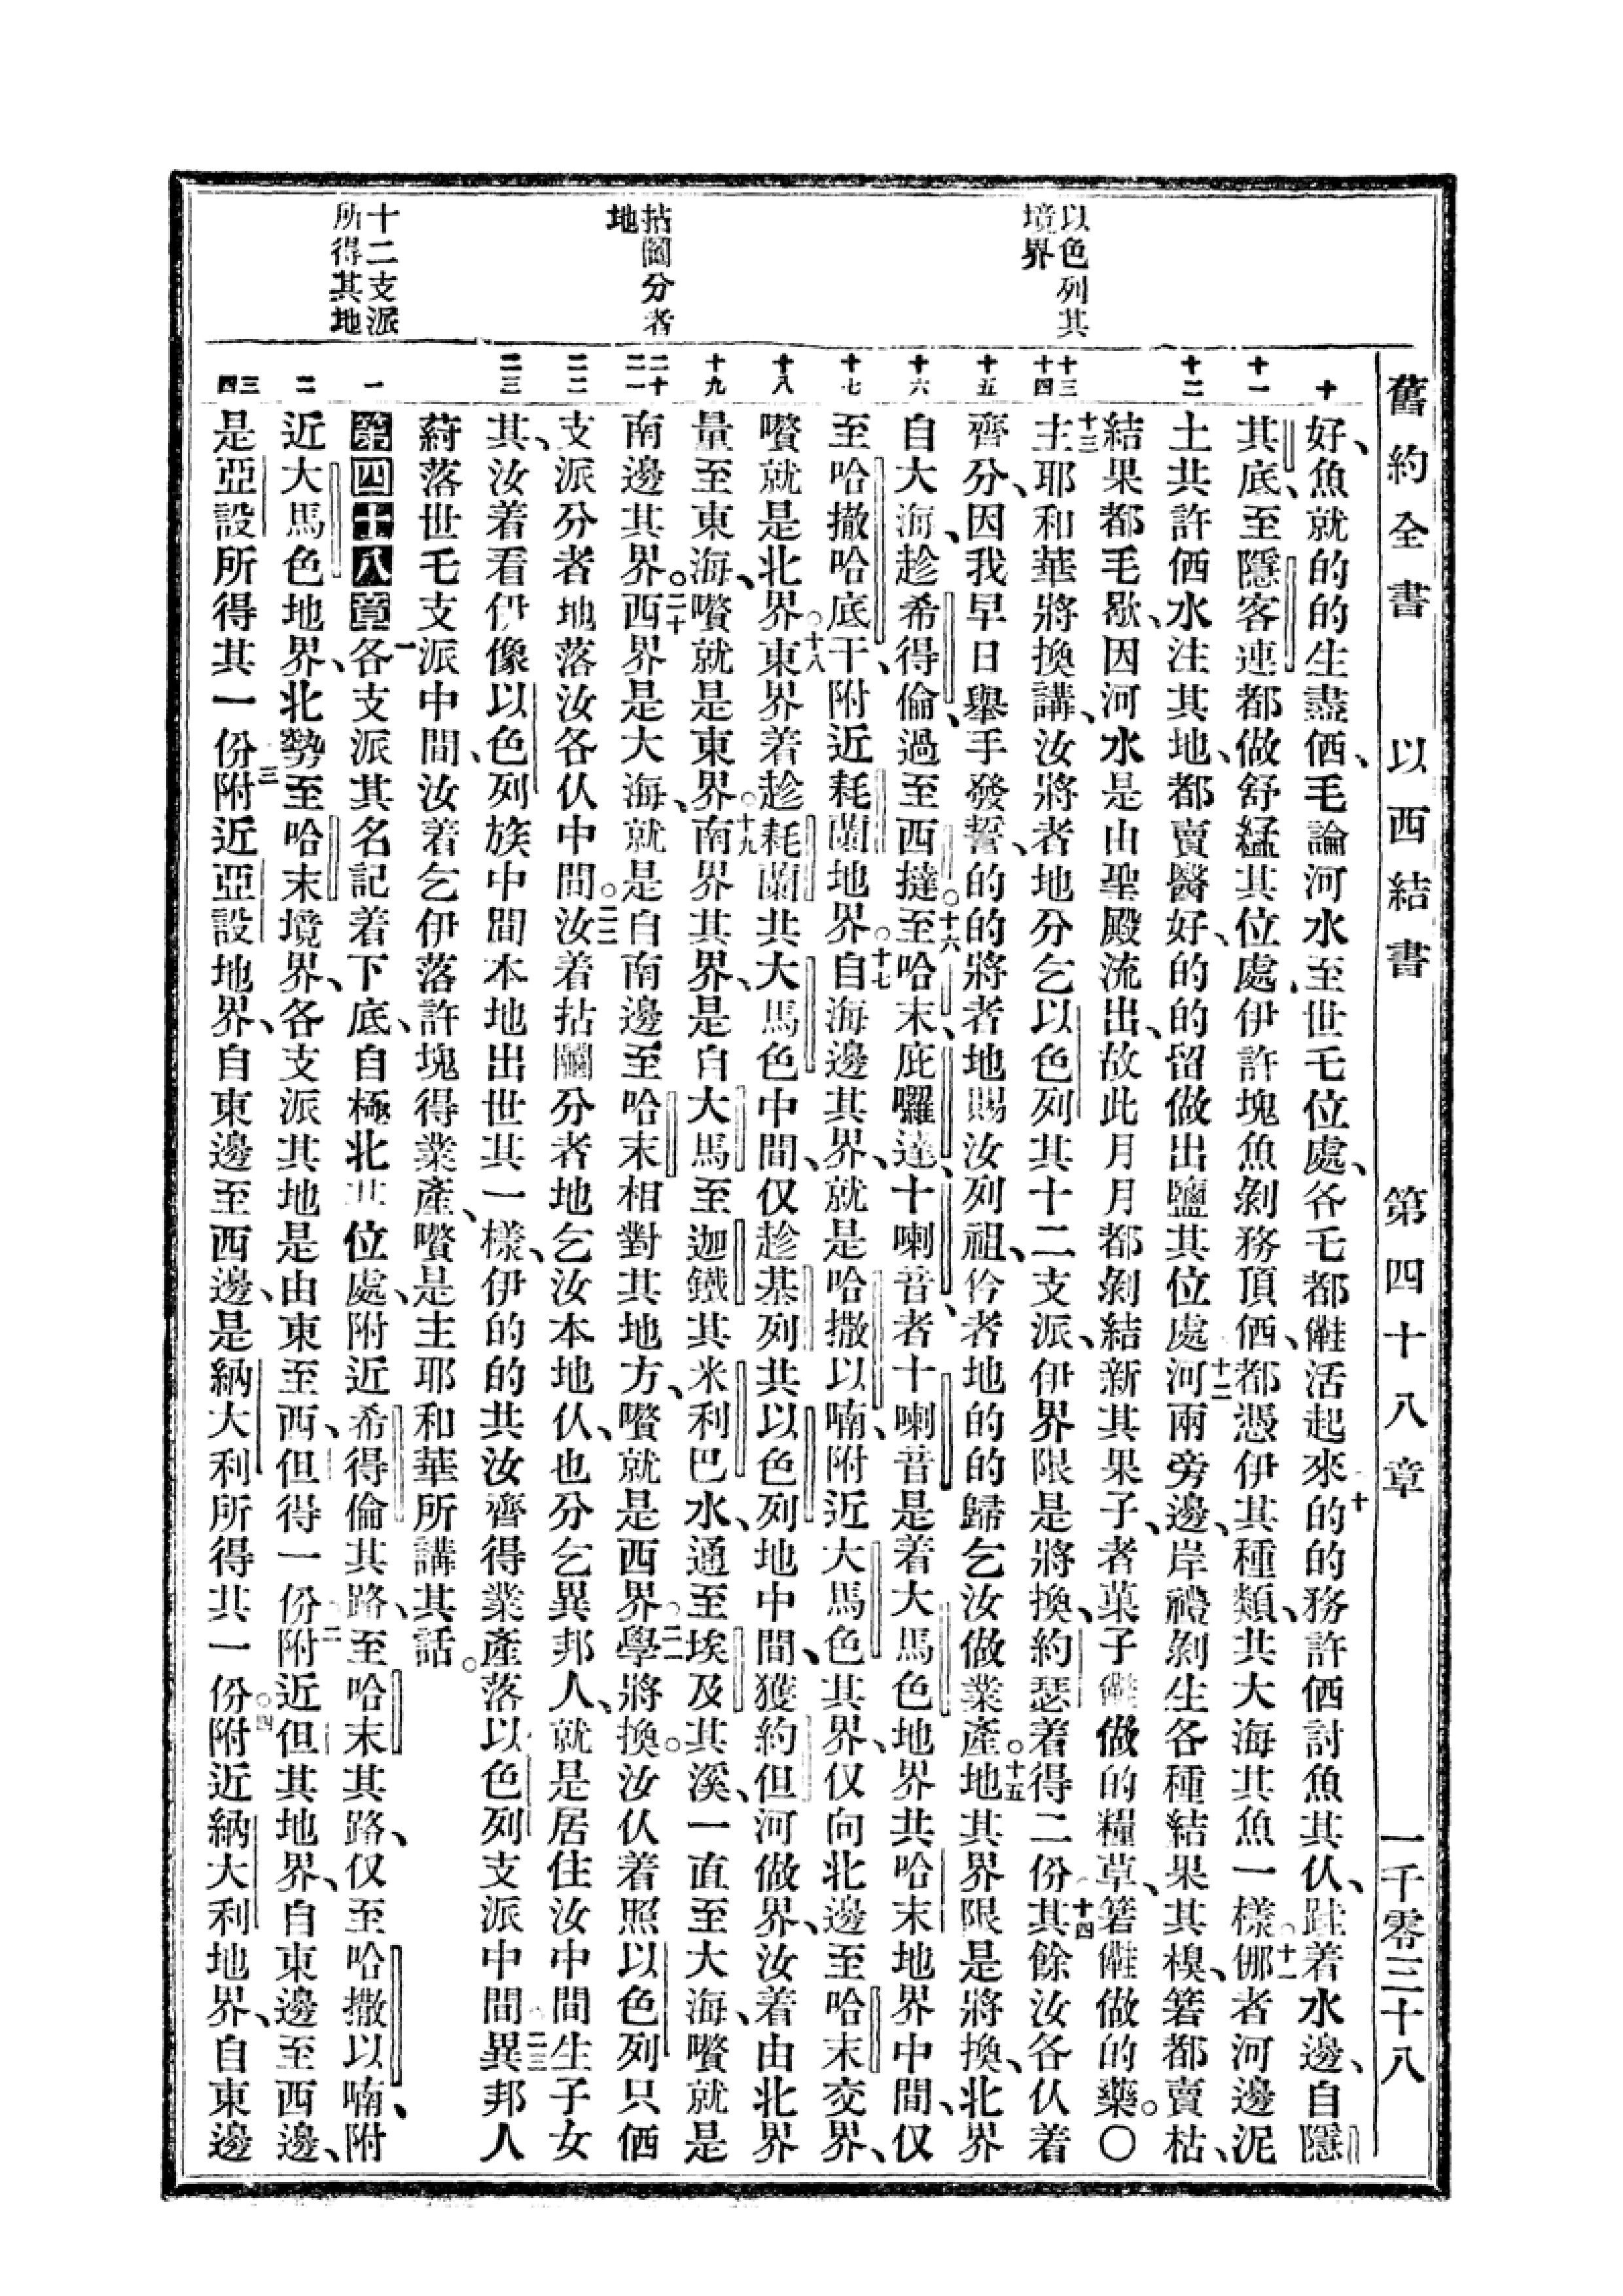 舊約全書　以西結書　第四十八章　一千零三十八
以色列其
境界
拈鬮分者
地
十二支派
所得其地
十
十一
十二
十三
十四
十五
十六
十七
十八
十九
二十
二一
二二
二三
一
二
三
四
好、魚就的的生盡価、毛論河水至世毛位處、各毛都活起來、十的的務許価討魚其仈、跬着水邊、自隱
其底、至隱客連都做舒綎其位處、伊許塊魚剝務頂価、都憑伊其種類、共大海其魚一樣。十一㑚者河邊泥
土共許価水注其地、都賣醫好、的的留做出鹽其位處、十二河兩旁邊、岸禮剝生各種結果其模、箬都賣枯、
結果都毛歇、因河水是由聖殿流出、故此月月都剝結新其果子、者菓子做的糧草、箬做的藥。〇
十三主耶和華將換講、汝將者地分乞以色列其十二支派、伊界限是將換、約瑟着得二份、十四其餘汝各仈着
齊分、因我早日舉手發誓、的的將者地賜汝列祖、仱者地的的歸乞汝做業產。十五地其界限是將換、北界
自大海、趁希得倫、過至西撻。十六至哈末、庇囉達、十喇音、者十喇音是着大馬色地界共哈末地界中間、仅
至哈撤哈底干、附近耗蘭地界。十七自海邊其界、就是哈撒以喃、附近大馬色其界、仅向北邊至哈末交界、
嚽就是北界。十八東界着趁耗蘭共大馬色中間、仅趁基列共以色列地中間、獲約但河做界、汝着由北界
量至東海、嚽就是東界。十九南界其界、是自大馬至迦鐵其米利巴水、通至埃及其溪、一直至大海、嚽就是
南邊其界。二十西界是大海、就是自南邊至哈末相對其地方、嚽就是西界。二一學將換汝仈着照以色列只価
支派分者地落汝各仈中間。二二汝着拈鬮分者地乞汝本地仈、也分乞異邦人、就是居住汝中間生子女
其、汝着看伊像以色列族中間本地出世其一樣、伊的的共汝齊得業產落以色列支派中間。二三異邦人
蒶落世毛支派中間、汝着乞伊落許塊得業產、嚽是主耶和華所講其話。
第四十八章一各支派其名記着下底、自極北其位處、附近希得倫其路、至哈末其路、仅至哈撒以喃、附
近大馬色地界、北勢至哈末境界、各支派其地是由東至西、但得一份。二附近但其地界、自東邊至西邊、
是亞設所得其一份。三附近亞設地界、自東邊至西邊、是納大利所得其一份。四附近納大利地界、自東邊